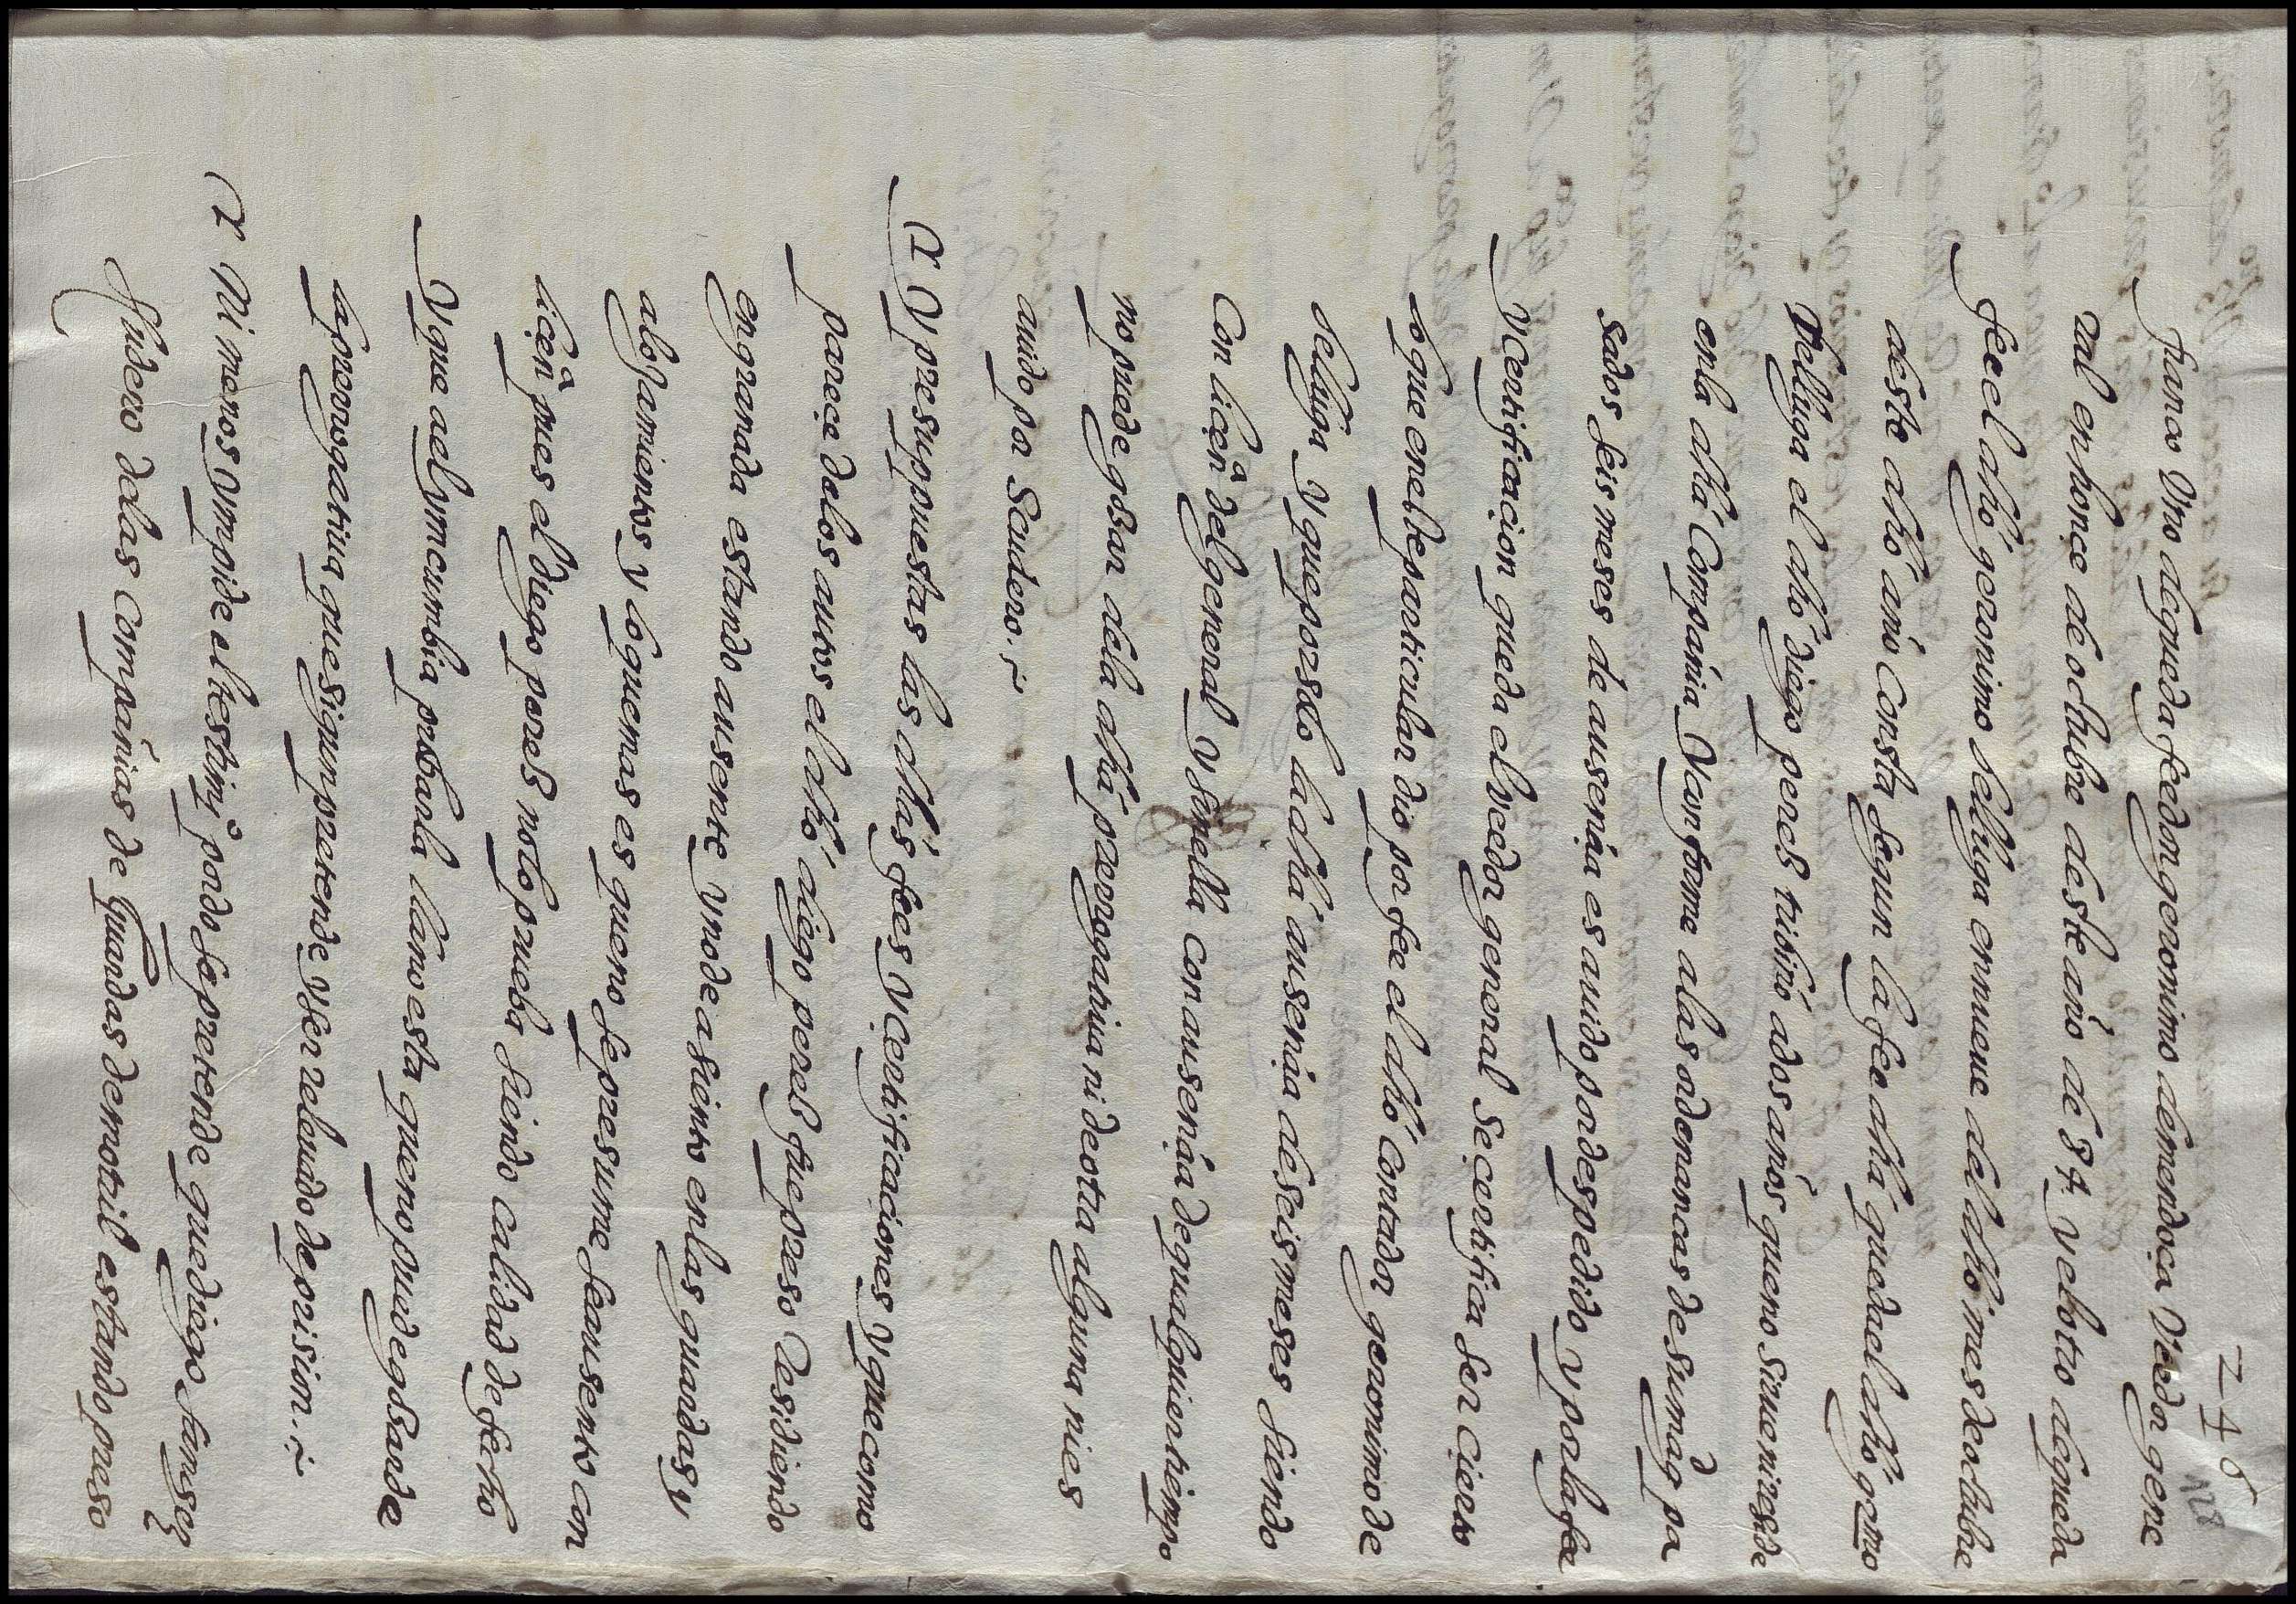 246
128
sumario Uno de queda fee don geronimo de mendoça Veedor gene
ral en honçe de octubre deste año de 87 y el otro de queda
fee el dho geronimo de Selliga en nueue del dho mes de octubre
deste dho año Consta segun la fee dha queda el dho germo
Selliga el dho diego perez tiçino a dos años que no sirue ni reside
en la dha Compañia y conforme a las ordenanças de su magd pa
sados seis meses de ausençia es auido por despedido y por la fee
y Certificaçion que da el veedor general se certifica ser çierto
lo que en este particular dio por fee el dho Contador geronimo de
Selliga y que por solo la dha ausençia de seis meses siendo
Con liçençia del general y sin ella con ausençia de qualquier tiempo
no puede gozar de la dha prerrogatiua ni de otra alguna ni es
auido por Scudero.
Y presuppuestas las dhas fees y Certificaciones y que como
pareçe de los autos el dho diego perez fue preso Residiendo
en granada estando ausente y no de asiento en las guardas y
alojamientos y lo que mas es que no se presume se ausento con
liçençia pues el diego perez no lo prueba siendo calidad de fecho
y que a el yncumbia probarla llano esta que no puede gozar de
la prerrogatiua que sigun pretende y ser releuado de prision.
Ni menos ympide el testimo por do se pretende que diego sanchez
Scudero de las compañias de Guardas de motril estando preso